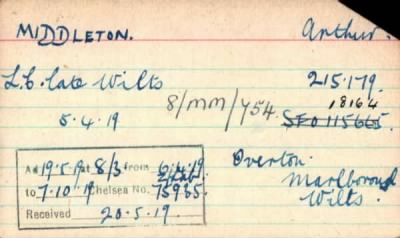 MIDDLETON. Arthur.
L.C. late Wilts 215.179.
8/MM/454. 18164
5.4.19 SFO 115665.
Awd 19.5.19 at 8/3 from 6.4.19 Overton.
to 7.10.19 Chelsea No. 75935. Marlborough
Received 20.5.19. Wilts.